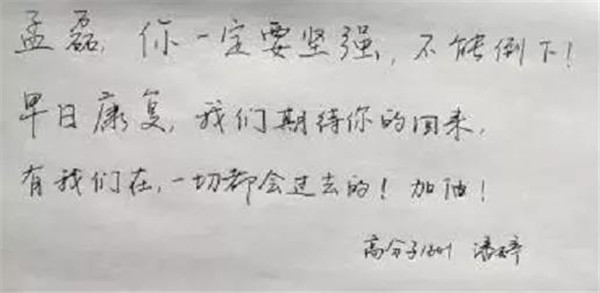 孟磊,你一定要坚强,不能倒下!
早日康复,我们期待你的回来,
有我们在,一切都会过去的!加油!
高分子1641 潘婷